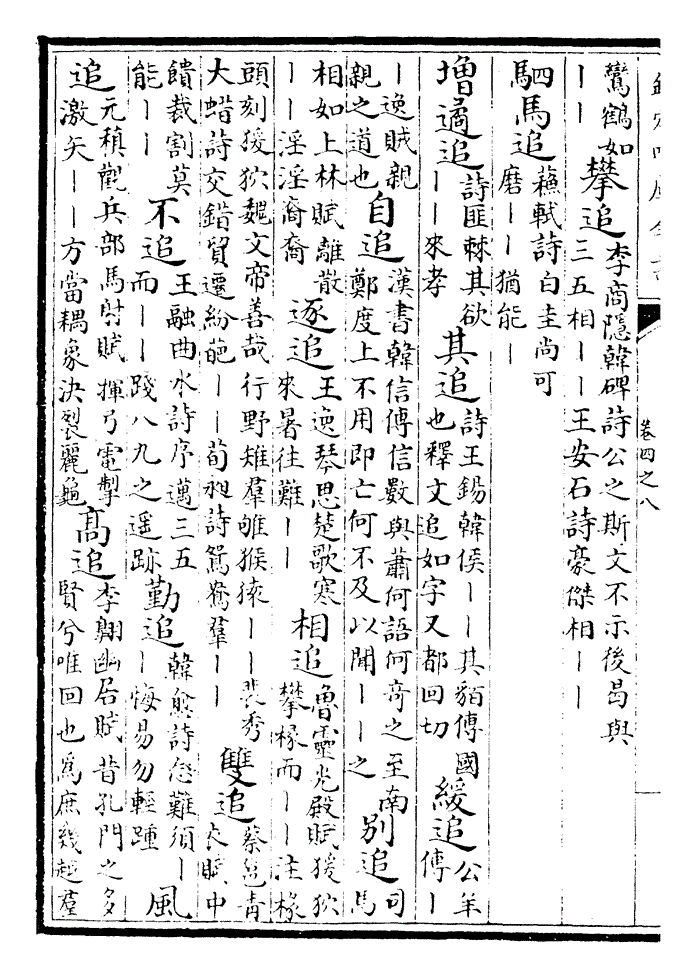 欽定四庫全書
卷四之八
鸞鶴如
丨丨
攀追
李商隱韓碑詩公之斯文不示後曷與
三五相丨丨王安石詩豪傑相丨丨
駟馬追
蘓軾詩白圭尚可
磨丨丨猶能丨
增遹追
詩匪棘其欲
丨丨來孝
其追
詩王錫韓侯丨丨其貊傳國
也釋文追如字又都回切
緩追
公羊
傳丨
丨逸賊親
親之道也
自追
漢書韓信傳信數與蕭何語何奇之至南
鄭度上不用即亡何不及以聞丨丨之
别追
司
馬
相如上林賦離散
丨丨淫淫裔裔
逐追
王逸琴思楚歌寒
來暑往難丨丨
相追
魯靈光殿賦猨狖
攀椽而丨丨注椽
頭刻猨狖魏文帝善哉行野雉羣雊猴猿丨丨裴秀
大蜡詩交錯貿遷紛葩丨丨荀昶詩鴛鴦羣丨丨
雙追
蔡邕青
衣賦中
饋裁割莫
能丨丨
不追
王融曲水詩序邁三五
而丨丨踐八九之遥跡
勤追
韓愈詩愆難須丨
丨悔易勿輕踵
風
追
元稹觀兵部馬射賦揮弓電掣
激矢丨丨方當耦象決裂麗龜
高追
李翺幽居賦昔孔門之多
賢兮唯回也為庶幾超羣